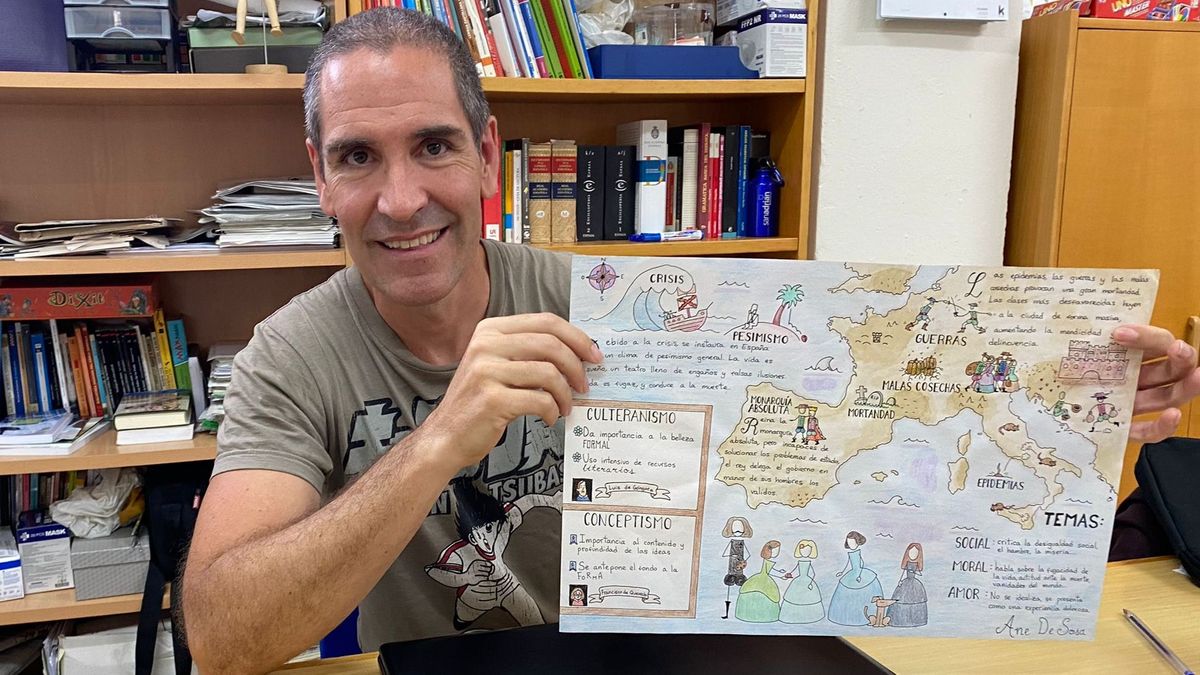 UNO
MASTER
20 PCS MASK
FFP2 NR
k
DiXit
GRAMÁTICA
sanadrián
TSUBASA
CRISIS
PESIMISMO
ebido a la crisis, se instaura en España
un clima de pesimismo general. La vida es
sueño, un teatro lleno de engaños y falsas ilusiones.
da es fugaz, y conduce a la muerte.
Las epidemias, las guerras y las malas
cosechas provocan una gran mortandad.
Las clases más desfavorecidas huyen
a la ciudad de forma masiva,
aumentando la mendicidad
delincuencia.
GUERRAS
MALAS COSECHAS
RIP
MORTANDAD
EPIDEMIAS
MONARQUÍA
ABSOLUTA
Reina la
monarquía
absoluta, pero incapaces de
solucionar los problemas de estado
el rey delega el gobierno en
manos de sus hombres, los
validos.
CULTERANISMO
Da importancia a la belleza
FORMAL
Uso intensivo de recursos
literarios
Luis de Góngora
CONCEPTISMO
Importancia al contenido y
profundidad de las ideas
Se antepone el fondo a la
FORMA
Francisco de Quevedo
TEMAS:
SOCIAL: critica la desigualdad social,
el hambre, la miseria...
MORAL: habla sobre la fugacidad de
la vida, actitud ante la muerte,
vanidades del mundo.
AMOR: No se idealiza, se presenta
como una experiencia dolorosa.
Ane De Sosa